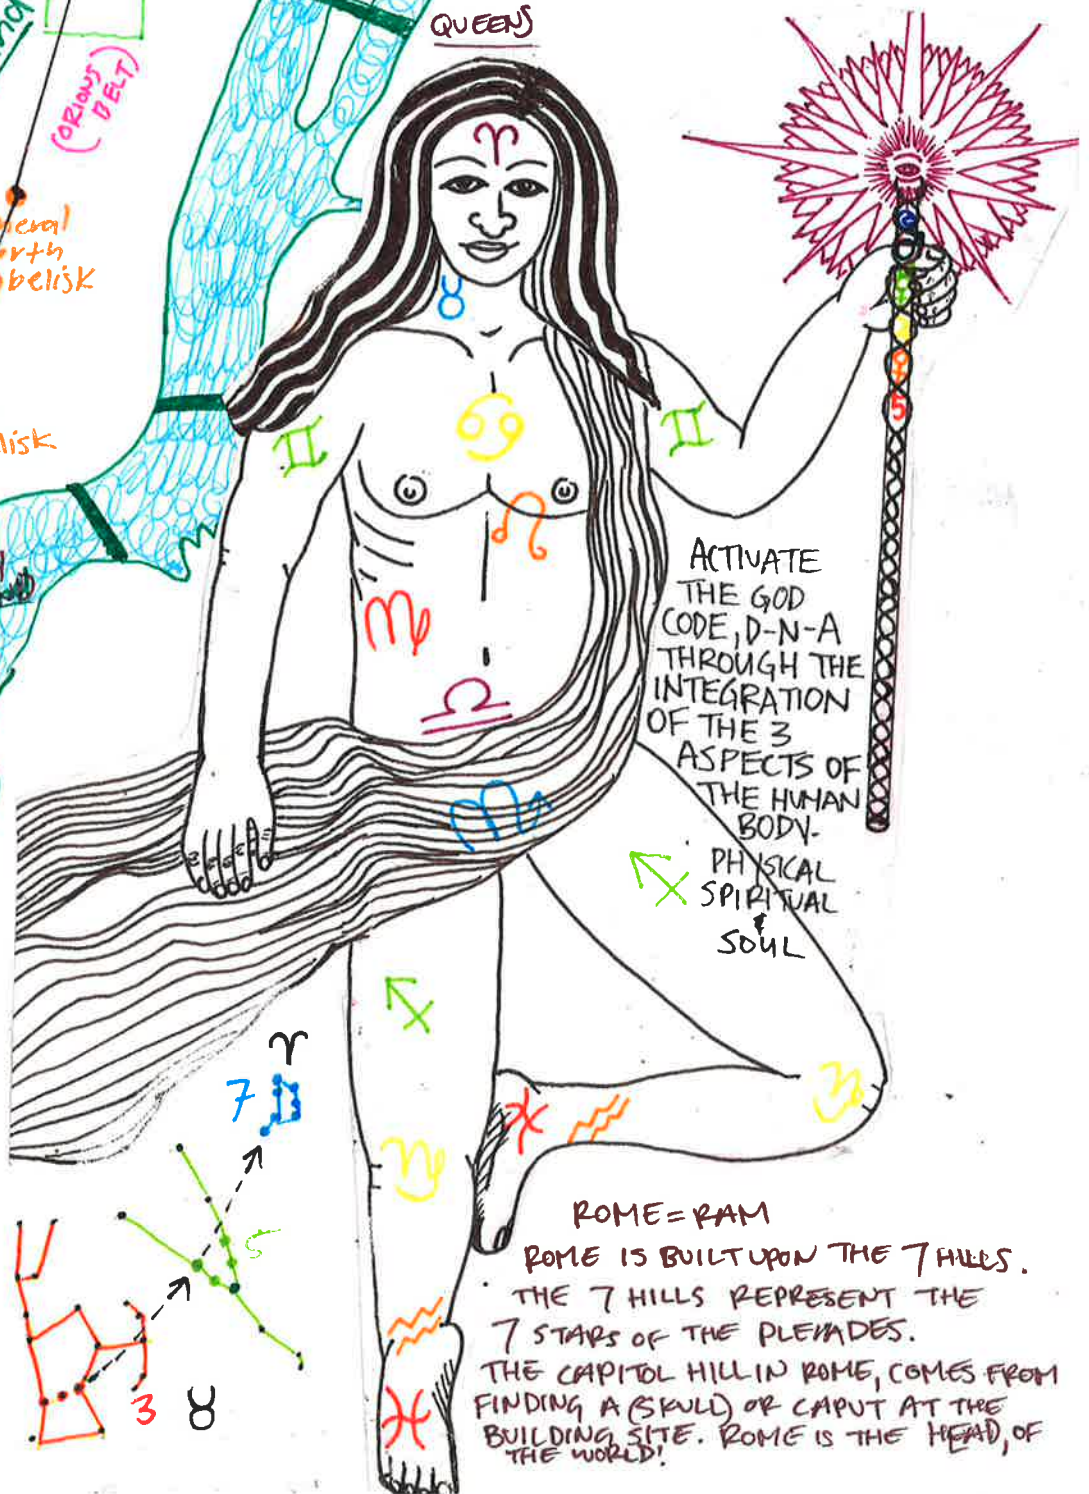 QUEENS
(ORIONS
BELT)
and
neral
orth
obelisk
lisk
ACTIVATE
THE GOD
CODE, D-N-A
THROUGH THE
INTEGRATION
OF THE 3
ASPECTS OF
THE HUMAN
BODY.
PHYSICAL
SPIRITUAL
&
SOUL
♈
♉
♊ ♊
♋
♌
♍
♎
♏
♐
♐
♑
♓ ♒
♑
♒
♓
5
♈
7
5
3 ♉
ROME = RAM
ROME IS BUILT UPON THE 7 HILLS.
THE 7 HILLS REPRESENT THE
7 STARS OF THE PLEIADES.
THE CAPITOL HILL IN ROME, COMES FROM
FINDING A (SKULL) OR CAPUT AT THE
BUILDING SITE. ROME IS THE HEAD, OF
THE WORLD!